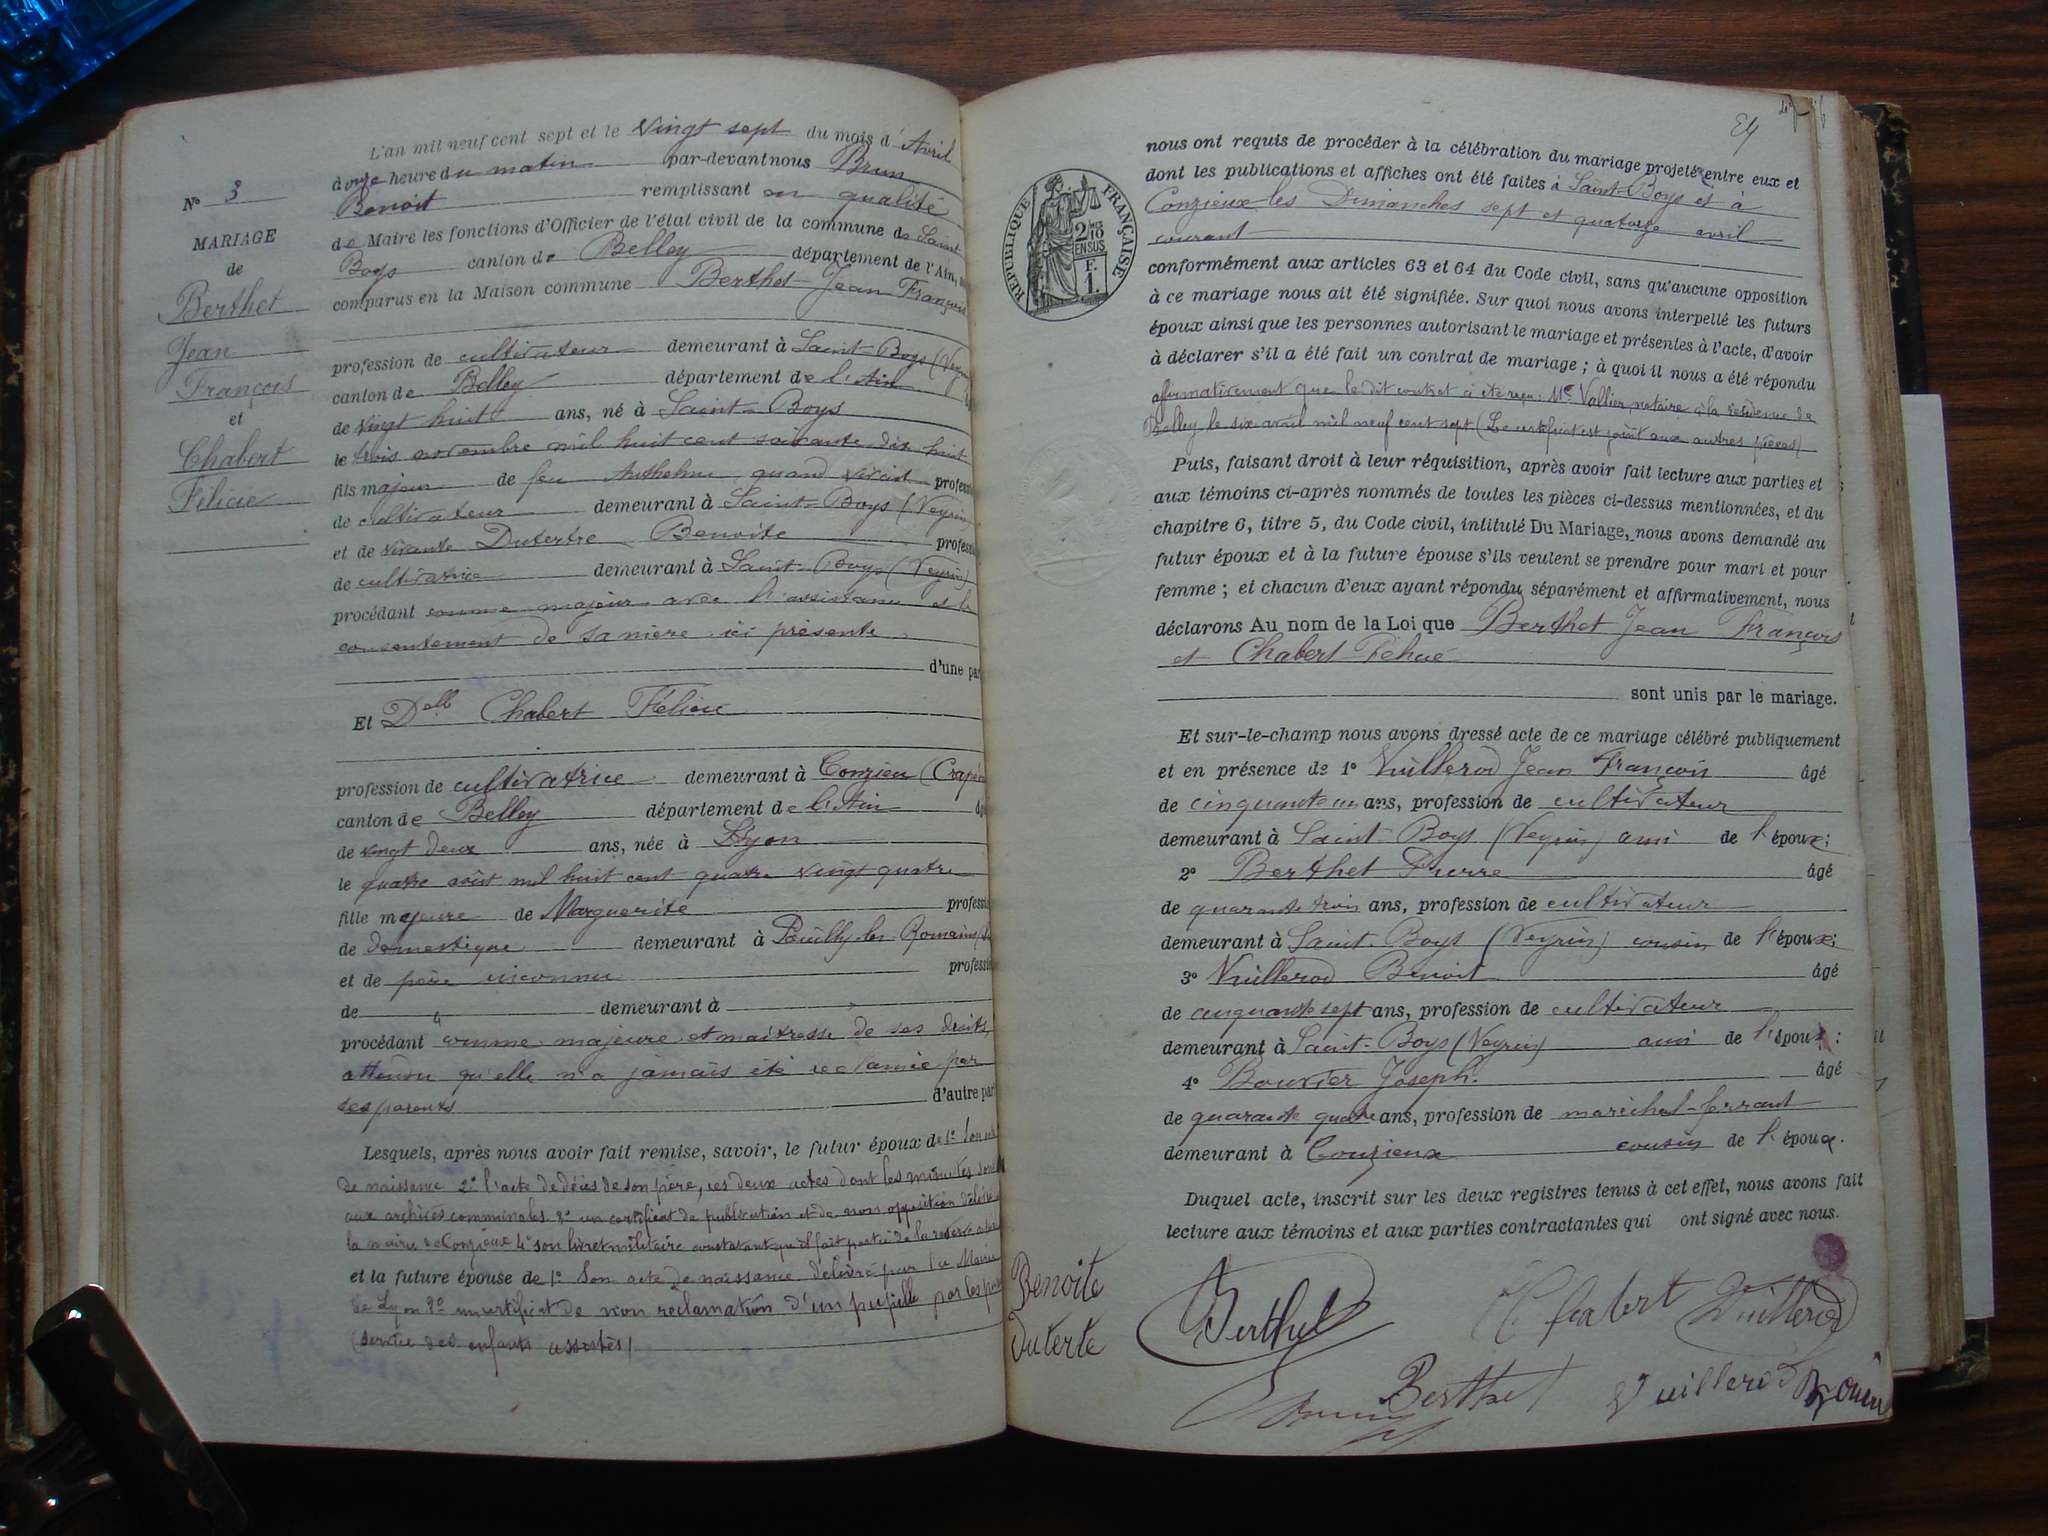 N° 3
MARIAGE
de
Berthet
Jean
François
et
Chabert
Félicie
L'an mil neuf cent sept et le vingt sept du mois d'Avril
à onze heure du matin par-devant nous Brun
Benoit remplissant en qualité
de Maire les fonctions d'Officier de l'état civil de la commune de Saint
Boys canton de Belley département de l'Ain,
comparus en la Maison commune Berthet Jean François
profession de cultivateur demeurant à Saint-Boys
canton de Belley département de l'Ain
de vingt huit ans, né à Saint-Boys
le trois novembre mil huit cent soixante dix huit
fils majeur de feu Anthelme quand vivait
de cultivateur demeurant à Saint-Boys (Veyrin)
et de vivante Dutertre Benoite
de cultivatrice demeurant à Saint-Boys (Veyrin)
procédant comme majeur avec l'assistance et le
consentement de sa mère ici présente
d'une par
Et Delle Chabert Félicie
profession de cultivatrice demeurant à Conzieu
canton de Belley département de l'Ain
de vingt deux ans, née à Lyon
le quatre août mil huit cent quatre vingt quatre
fille majeure de Marguerite
de domestique demeurant à Pouilly les Romains
et de père inconnu
de demeurant à
procédant comme majeure et maîtresse de ses droits,
attendu qu'elle n'a jamais été réclamée par
ses parents d'autre par
Lesquels, après nous avoir fait remise, savoir, le futur époux de 1°
de naissance 2° l'acte de décès de son père, ces deux actes dont les minutes sont
aux archives communales 3° un certificat de publication et de non opposition délivré
la mairie de Conzieux 4° son livret militaire constatant qu'il fait partie de la réserve
et la future épouse de 1° Son acte de naissance délivré par la Mairie
de Lyon 2° un certificat de non réclamation d'un pupille par les
(service des enfants assistés)
24
RÉPUBLIQUE FRANÇAISE
2/10 EN SUS
F. 1.
nous ont requis de procéder à la célébration du mariage projeté entre eux et
dont les publications et affiches ont été faites à Saint-Boys et à
Conzieux les Dimanches sept et quatorze avril
courant
conformément aux articles 63 et 64 du Code civil, sans qu'aucune opposition
à ce mariage nous ait été signifiée. Sur quoi nous avons interpellé les futurs
époux ainsi que les personnes autorisant le mariage et présentes à l'acte, d'avoir
à déclarer s'il a été fait un contrat de mariage ; à quoi il nous a été répondu
affirmativement que le dit contrat a été reçu Me Vallier notaire à la résidence de
Belley le six avril mil neuf cent sept (Le certificat est joint aux autres pièces)
Puis, faisant droit à leur réquisition, après avoir fait lecture aux parties et
aux témoins ci-après nommés de toutes les pièces ci-dessus mentionnées, et du
chapitre 6, titre 5, du Code civil, intitulé Du Mariage, nous avons demandé au
futur époux et à la future épouse s'ils veulent se prendre pour mari et pour
femme ; et chacun d'eux ayant répondu séparément et affirmativement, nous
déclarons Au nom de la Loi que Berthet Jean François
et Chabert Félicie
sont unis par le mariage.
Et sur-le-champ nous avons dressé acte de ce mariage célébré publiquement
et en présence de 1° Vuillerod Jean François âgé
de cinquante un ans, profession de cultivateur
demeurant à Saint-Boys (Veyrin) ami de l'époux ;
2° Berthet Pierre âgé
de quarante trois ans, profession de cultivateur
demeurant à Saint-Boys (Veyrin) cousin de l'époux ;
3° Vuillerod Benoit âgé
de cinquante sept ans, profession de cultivateur
demeurant à Saint-Boys (Veyrin) ami de l'époux :
4° Bouvier Joseph âgé
de quarante quatre ans, profession de maréchal-ferrant
demeurant à Conzieux cousin de l'époux.
Duquel acte, inscrit sur les deux registres tenus à cet effet, nous avons fait
lecture aux témoins et aux parties contractantes qui ont signé avec nous.
Benoite
Duterte
Berthet
Chabert
Vuillerod
Brun
Berthet
Vuillerod